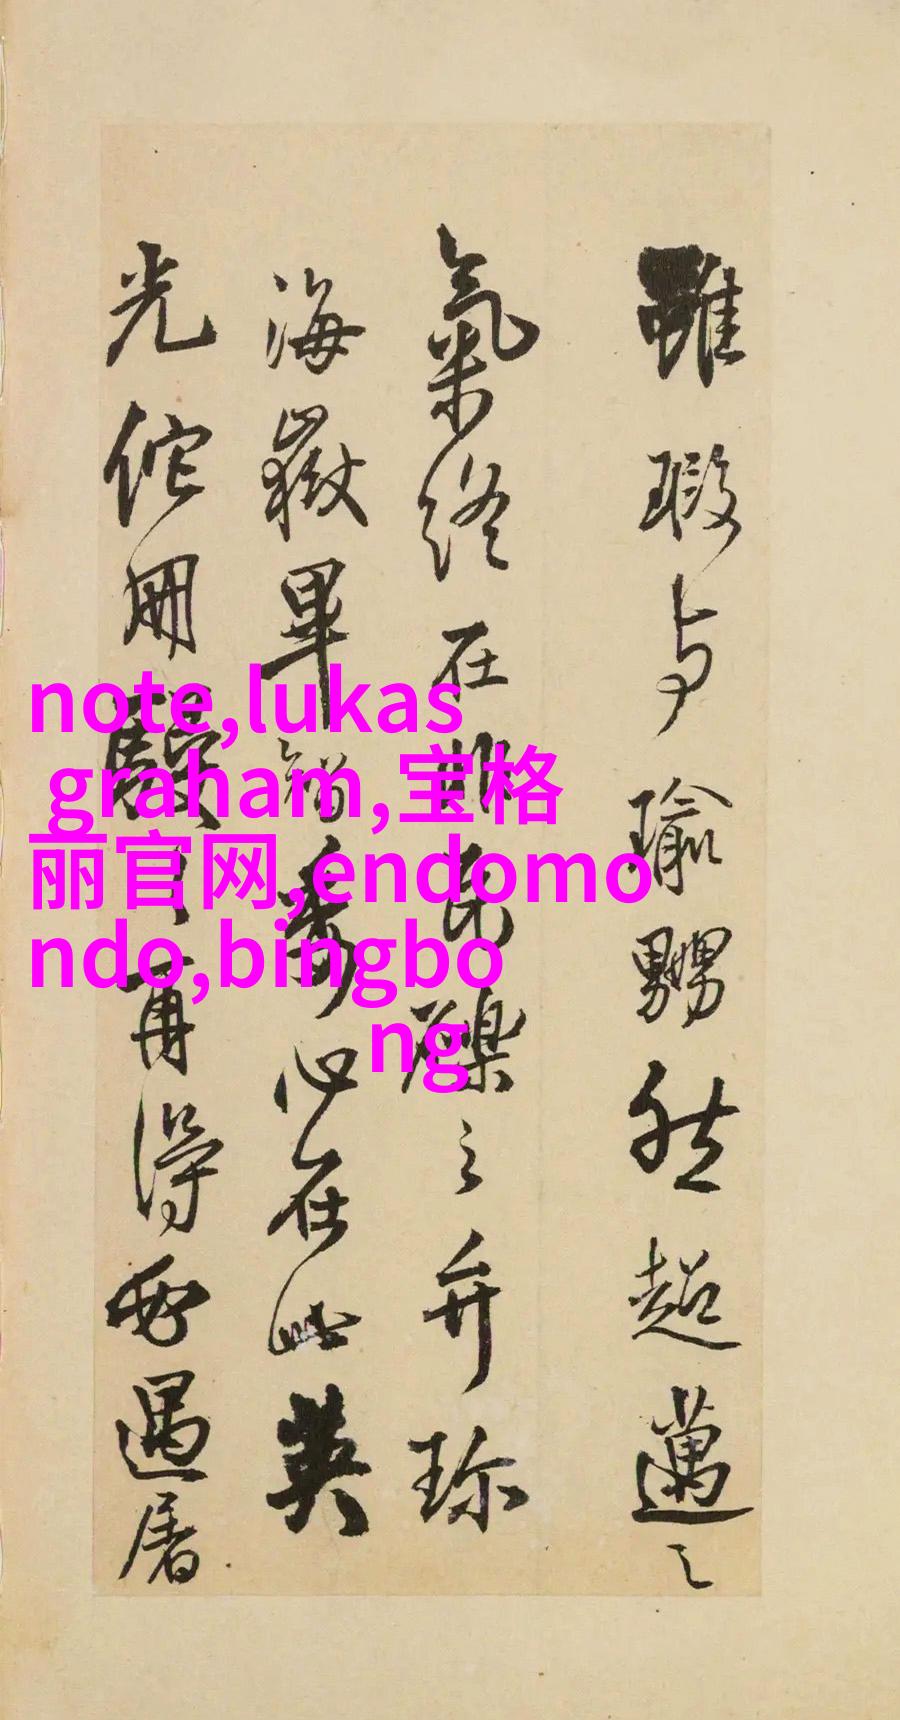 雖瑕与瑜嬲然超邁之
氣終在礫之弁珍
海嶽畢智心在此英
光佗冊再得遇屠
note,lukas
graham,宝格
丽官网,endomo
ndo,bingbo
ng